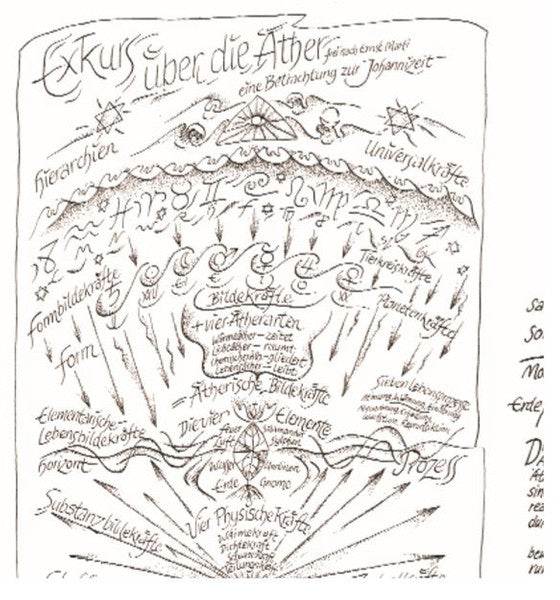 Exkurs über die Äther
frei nach Ernst Marti
eine Betrachtung zur Johannizeit
Hierarchien
Universalkräfte
Tierkreiskräfte
Formbildekräfte
Bildekräfte
Planetenkräfte
+ vier Ätherarten
Wärmeäther – zeitet
Lichtäther – räumt
gliedert
Lebensäther – leibt
Form
= Ätherische Bildekräfte
Sieben Lebensprozesse
Atmung
Elementarische
Lebensbildekräfte
Die vier Elemente
Feuer Salamander
Luft Sylphen
Horizont
Wasser Undinen
Prozess
Erde Gnome
Substanzbildekräfte
Vier Physische Kräfte
Wärmekraft
Dichtekraft
Schwerkraft
Teilungskraft
Sa
So
Mo
Erde